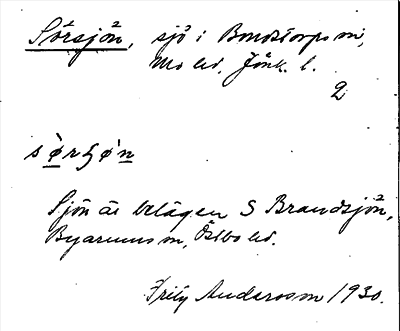 Sörsjön, sjö i Bondstorps sn,
Mo hd, Jönk. l.
2
sørʃøn
Sjön är belägen S Brandsjön,
Byarums sn, Östbo hd.
Fritz Andersson 1930.